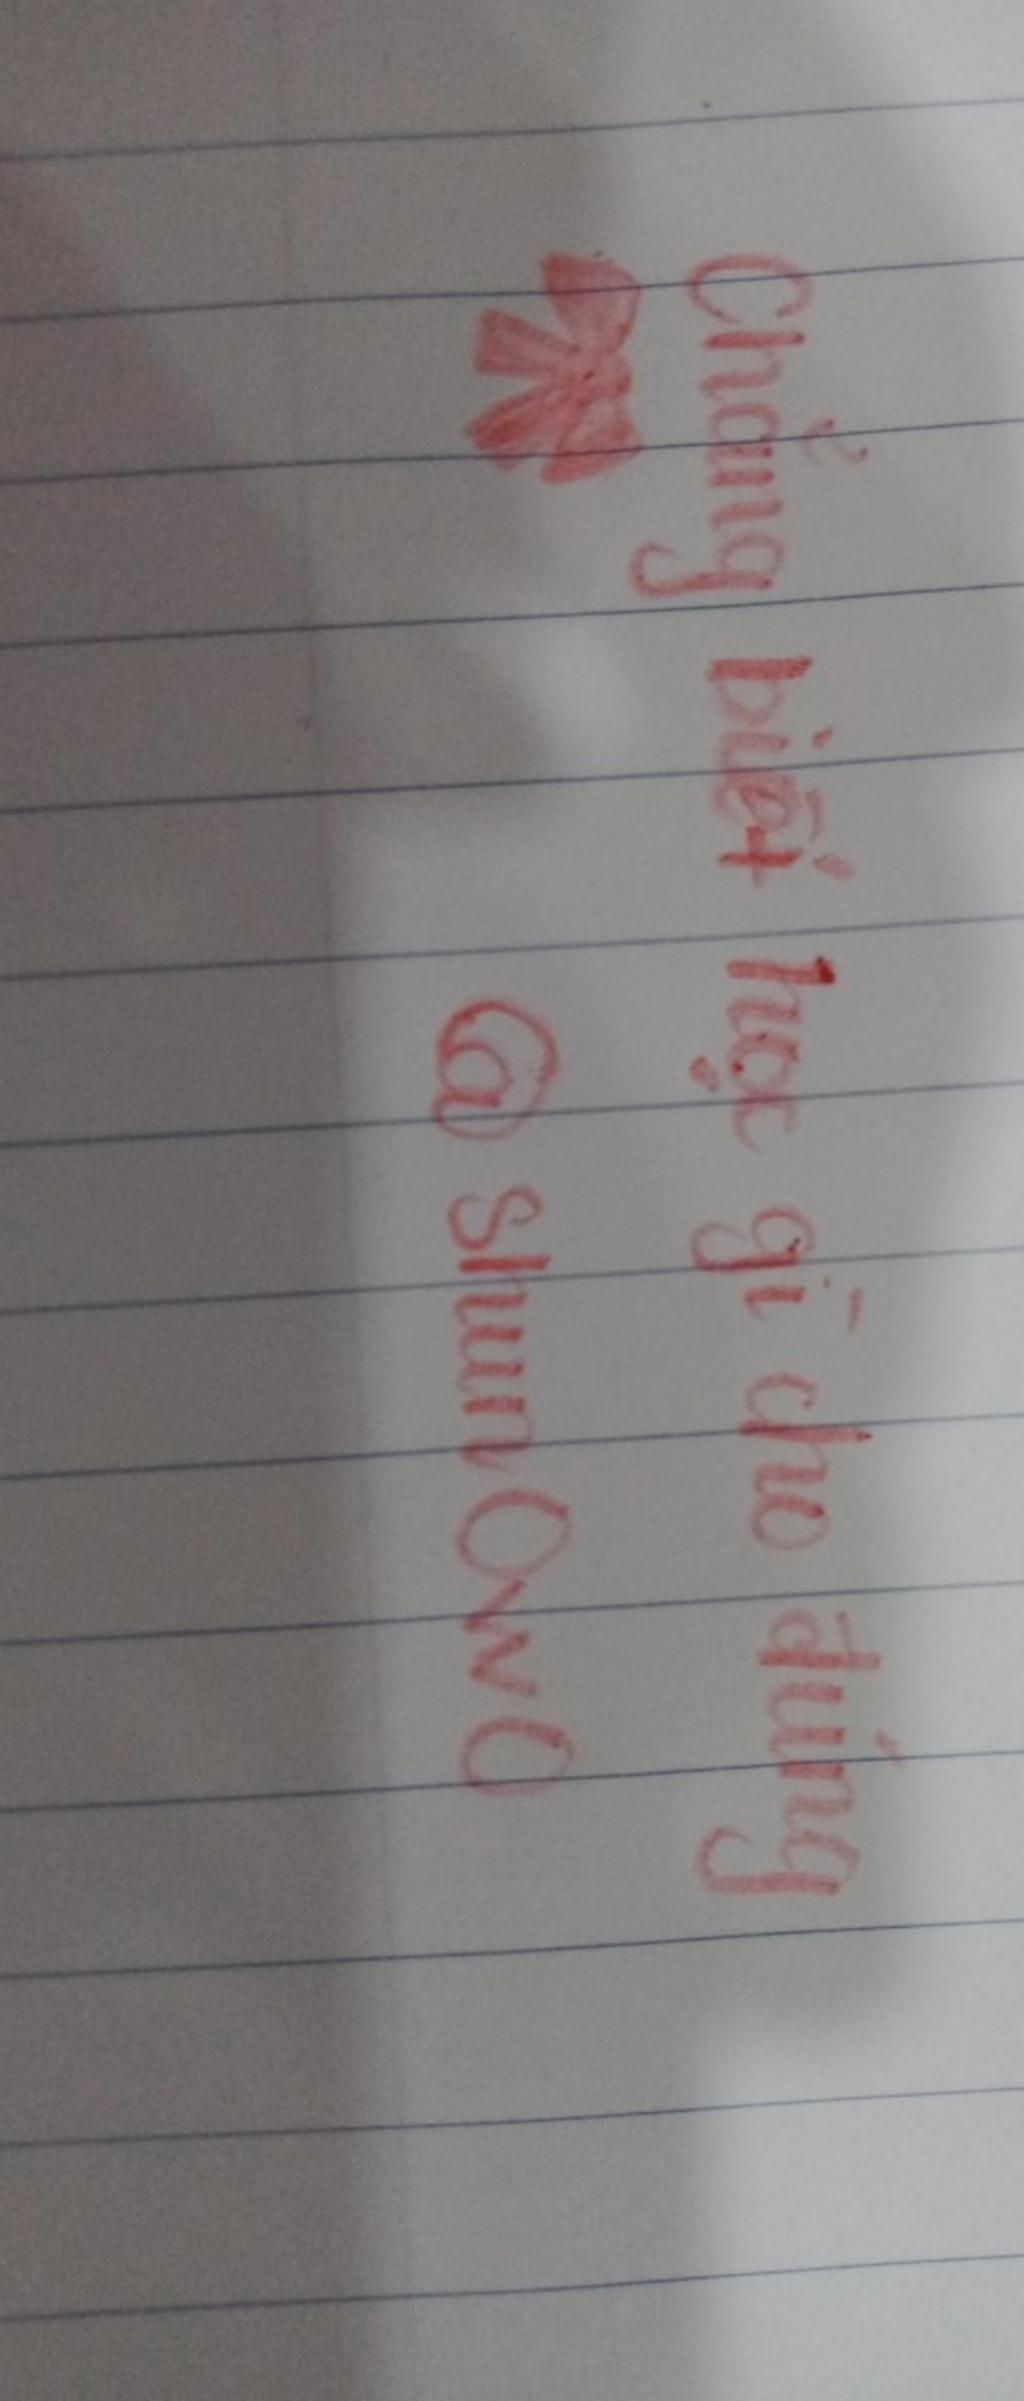 Chẳng biết học gì cho đúng
@ShunOwO